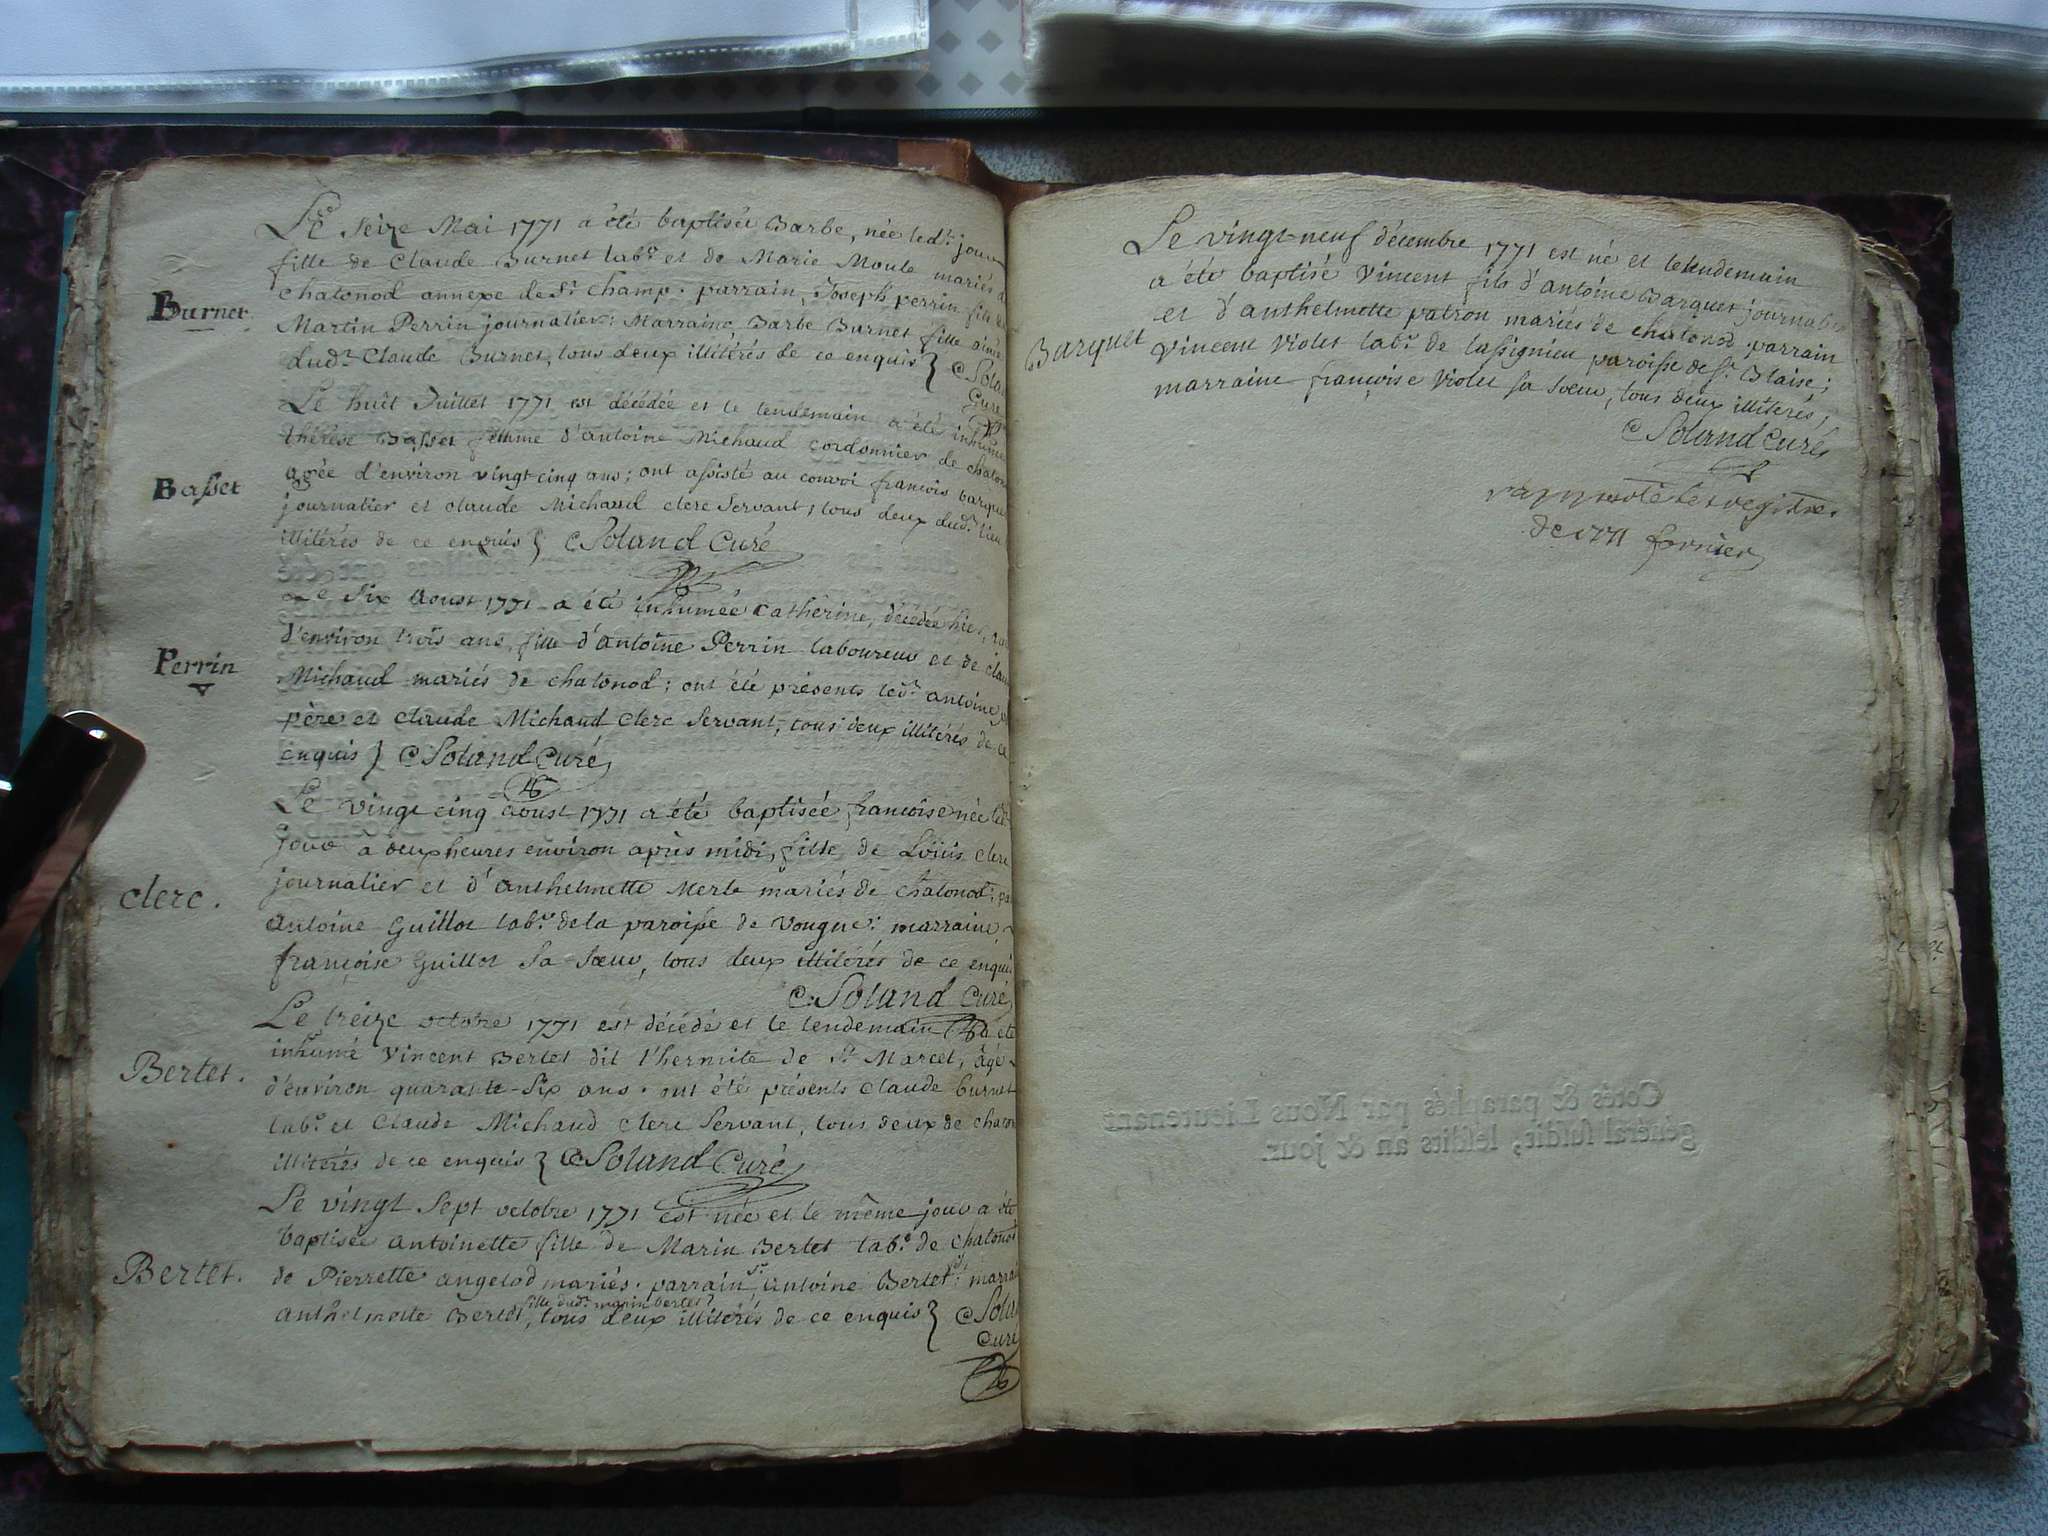 Burnet
Le Seize Mai 1771 a été baptisée Barbe, née led.t jour
fille de Claude Burnet lab.r et de Marie Moule mariés à
chatonod annexe de S.t champ. parrain, Joseph perrin fils de
Martin Perrin journalier: Marraine, Barbe Burnet fille aînée
dud.t Claude Burnet, tous deux illitérés de ce enquis } C Sola
Curé
Basset
Le huit Juillet 1771 est décédée et le lendemain a été inhumé
thérèse Basset femme d'antoine Michaud cordonnier de chaton
agée d'environ vingt cinq ans; ont assisté au convoi francois barquet
journalier et claude Michaud clerc Servant, tous deux dud.t lieu
illitérés de ce enquis } C Soland Curé
Perrin
Le Six Aoust 1771 a été inhumée Catherine, décédée hier,
d'environ trois ans, fille d'antoine Perrin laboureur et de clau
Michaud mariés de chatonod; ont été présents led.t antoine
père et claude Michaud clerc Servant, tous deux illitérés de ce
enquis } C Soland Curé
clerc.
Le vingt cinq aoust 1771 a été baptisée francoise née led.t
jour à deux heures environ après midi, fille de Loüis clerc
journalier et d'anthelmette Merle mariés de chatonod: pa
antoine Guillot lab.r de la paroisse de Vongne: marraine,
françoise Guillot Sa Sœur, tous deux illitérés de ce enquis
C. Soland Curé
Bertet.
Le treize octobre 1771 est décédé et le lendemain a été
inhumé Vincent Bertet dit l'hermite de S.t Marcel, âgé
d'environ quarante-Six ans. ont été présents Claude burnet
lab.r et Claude Michaud clerc Servant, tous deux de chaton
illitérés de ce enquis } C Soland Curé
Bertet.
Le vingt Sept octobre 1771 est née et le même jour a été
baptisée antoinette fille de Marin Bertet lab.r de chatonod
de Pierrette angelod mariés. parrain S.r antoine Bertet: marra
fille dud.t marin bertet
anthelmette Bertet, tous deux illitérés de ce enquis } C Sola
Curé
Barquet
Le vingt-neuf décembre 1771 est né et le lendemain
a été baptisé Vincent fils d'antoine Barquet journalier
et d'anthelmette patron mariés de chatonod. parrain
Vincent Violet lab.r de lassignieu paroisse de S.t Blaise;
marraine françoise Violet sa Sœur, tous deux illitérés;
C Soland Curé
rapporté le registre
de 1771 fornier
Cotés & paraphés par Nous Lieutenant
général susdit, lesdits an & jour.